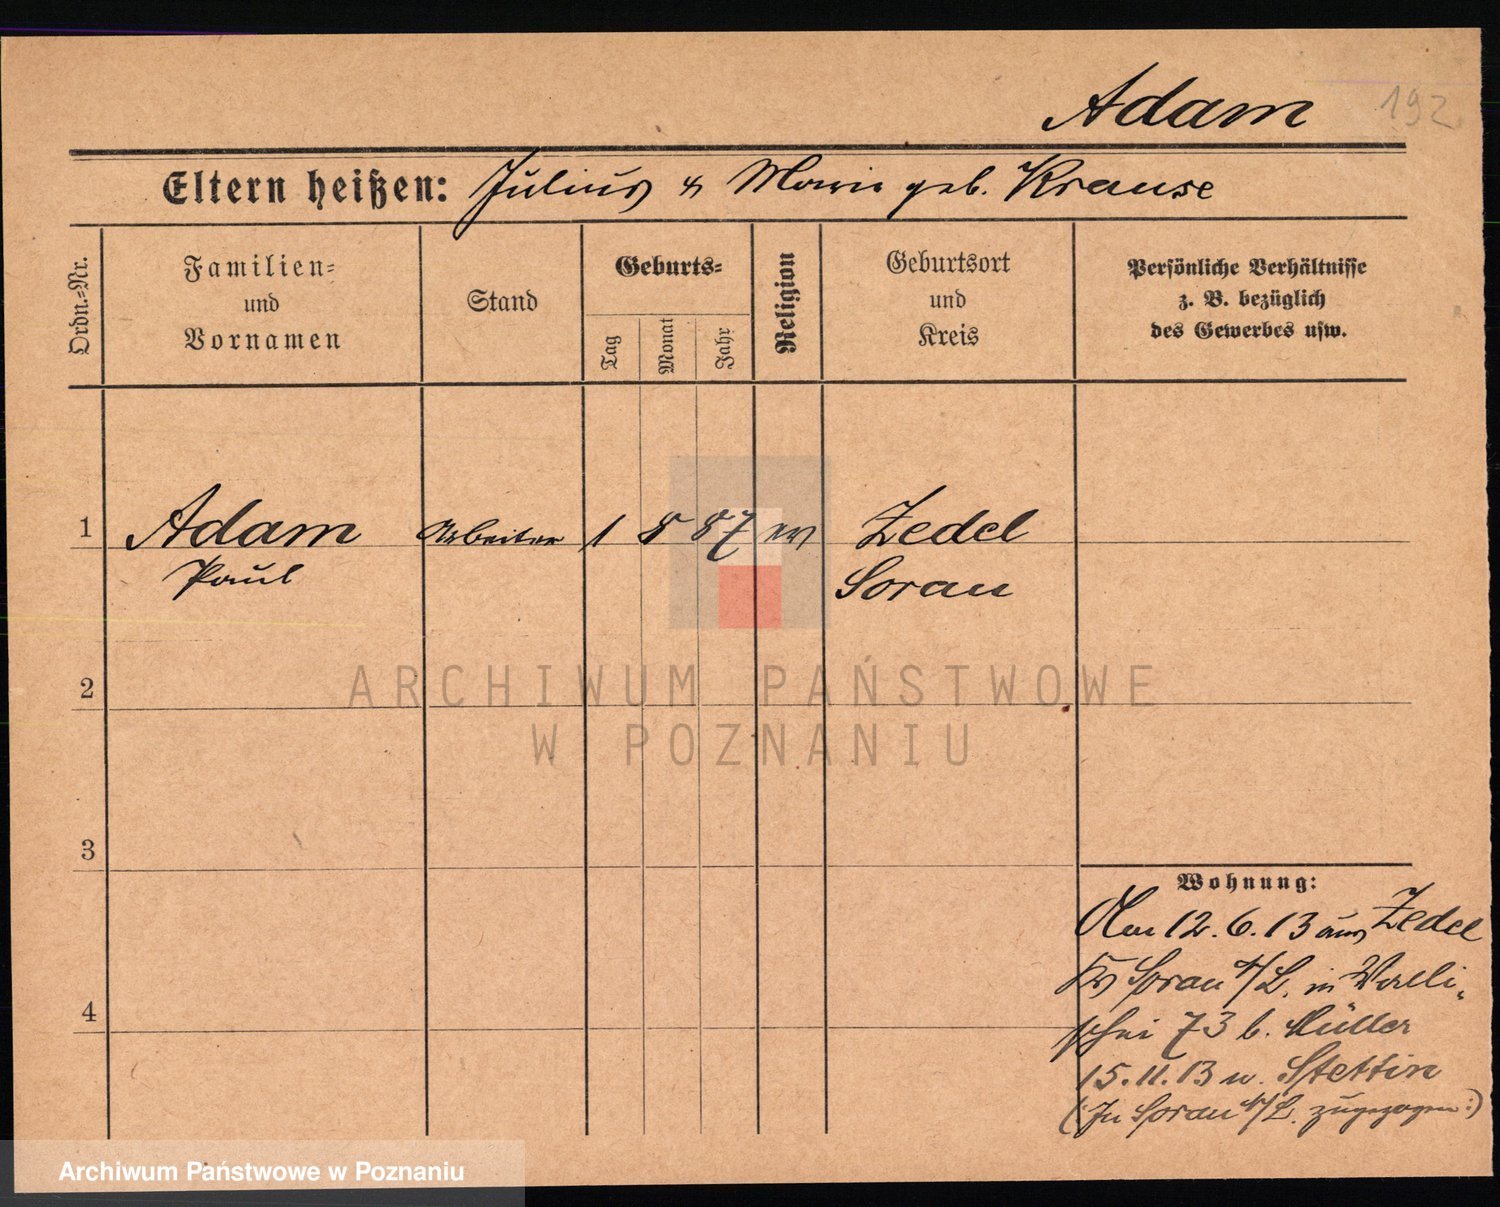 Adam 192
Eltern heißen: Julius & Marie geb. Krause
Ordn.-Nr.
Familien-
und
Vornamen
Stand
Geburts-
Tag
Monat
Jahr
Religion
Geburtsort
und
Kreis
Persönliche Verhältnisse
z. B. bezüglich
des Gewerbes usw.
1 Adam Arbeiter 1 8 87 ev Zedel
Paul Sorau
ARCHIWUM PAŃSTWOWE
W POZNANIU
2
3
4
Wohnung:
Am 12.6.13 aus Zedel
Krs Sorau N/L. in
73 b. Müller
15.11.13 n. Stettin
(: In Sorau N/L. zugezogen :)
Archiwum Państwowe w Poznaniu